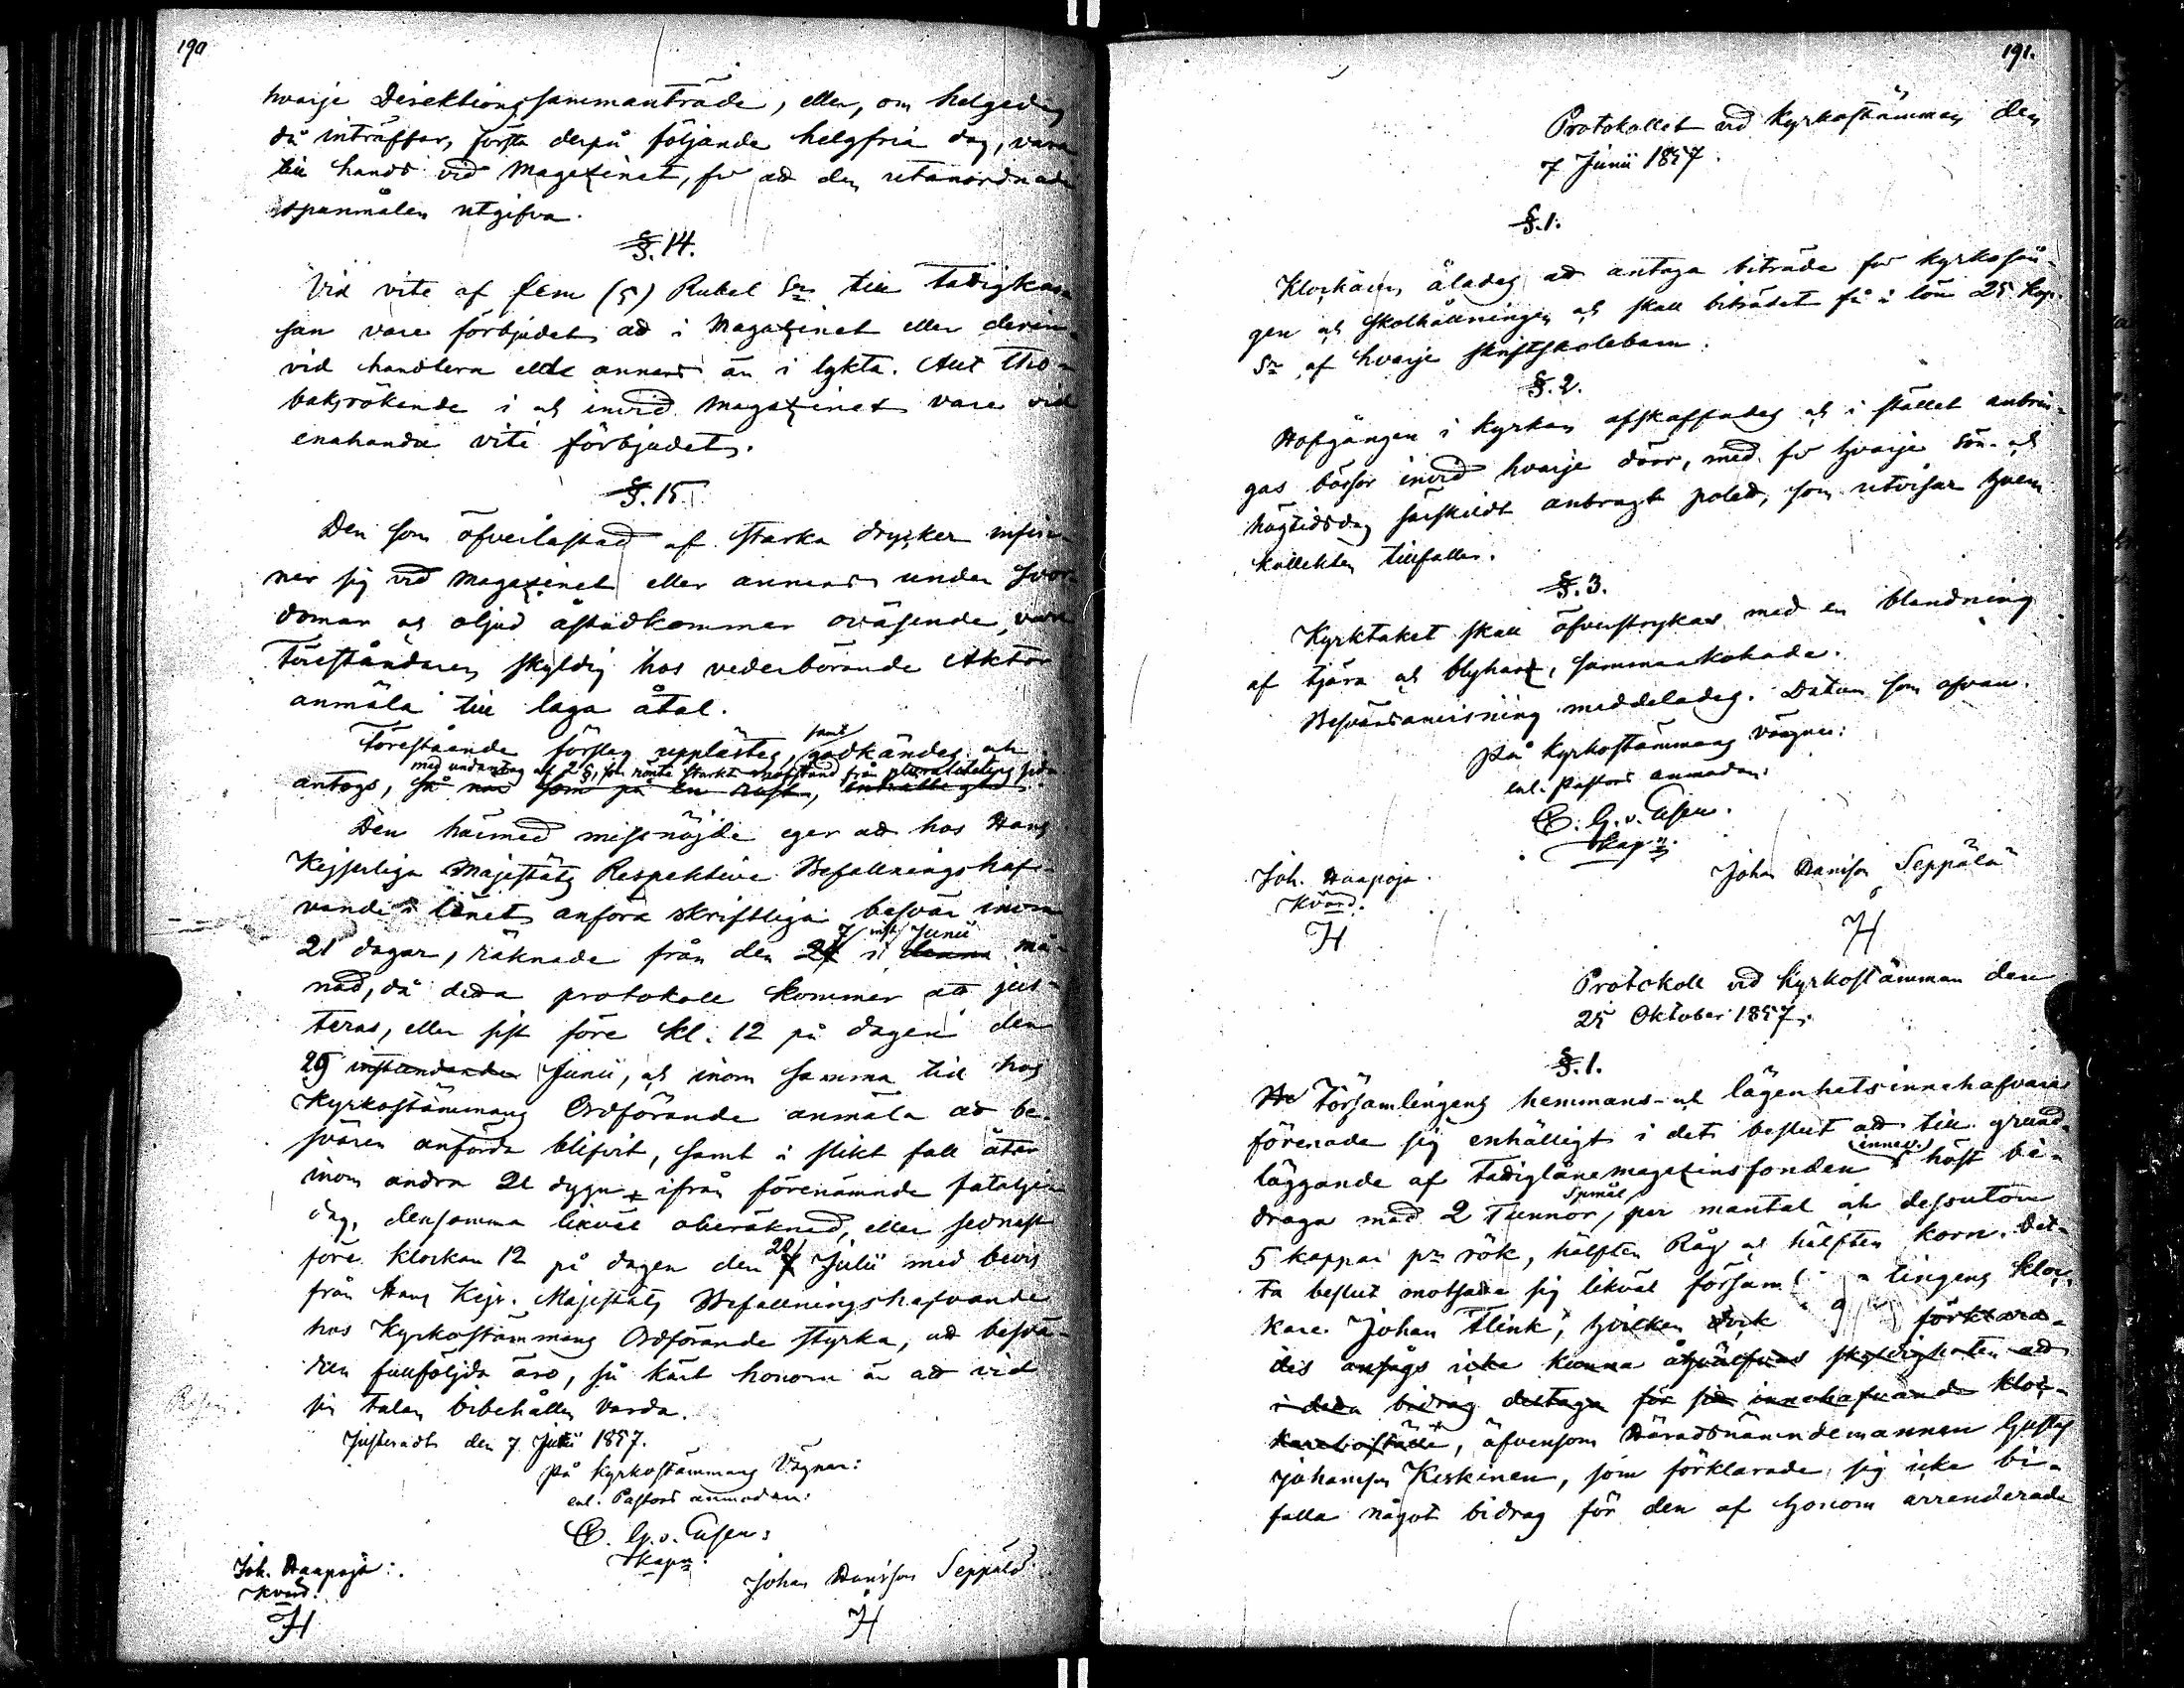 190
hvarje Direktionssammanträde, eller, om helgedag
då inträffar, första derpå följande helgfria dag, vara
till hands vid Magazinet, för att den utanordnade
spanmålen utgifva.
§. 14.
Vid vite af fem (5) Rubel Sr till Fattigkas-
san vare förbjudet att i Magazinet eller derin-
vid handtera elde annars än i lykta. Allt tho-
baksrökande i och invid Magazinet vare vid
enahanda vite förbjudet.
§. 15.
Den som öfverlastad af starka drycker infin-
ner sig vid Magazinet eller annars under svor-
domar och oljud åstadkommer oväsende, vare
Föreståndaren skyldig hos vederbörande Aktor
anmäla till laga åtal.
Förestående förslag upplästes, samt godkändes och
med undantag af 2 §, som rönte starkt motstånd från pluralitetens sida
antogs, så när som på en röst,
Den härmed missnöjde eger att hos Hans
Kejserliga Majestäts Respektive Befallningshaf-
vande i länet anföra skriftliga besvär inom
7 inst. Junii
21 dagar, räknade från den 24 i denna må-
nad, då detta protokoll kommer att jus-
teras, eller sist före kl. 12 på dagen den
29 inst̶u̶n̶d̶a̶n̶d̶e̶ Junii, och inom samma tid hos
Kyrkostämmans Ordförande anmäla att be-
svären anförda blifvit, samt i slikt fall åter
inom andra 21 dygn ifrån förenämnde fatalje
dag, densamma likväl oberäknad, eller sednast
före klockan 12 på dagen den 20 Julii med bevis
från Hans Kejs. Majestäts Befallningshafvande
hos Kyrkostämmans Ordförande styrka, att besvä-
ren fullföljda äro, så kärt honom är att vid
sin talan bibehållen varda.
Justeradt den 7 Junii 1857.
På Kyrkostämmans Vägnar:
enl. Pastors anmodan:
C. G. v. Essen:
Kapn.
Joh. Haapoja:
Kvärd.
H
Johan Hansson Seppälä
H
191.
Protokollet vid Kyrkostämman den
7 Junii 1857.
§. 1.
Klockaren ålades att antaga biträde för kyrkosån-
gen och skolhållningen och skall biträdet få i lön 25 kop.
Sr af hvarje skriftskolebarn.
§. 2.
Hofgången i kyrkan afskaffades och i stället anbrin-
gas bössor invid hvarje dörr, med för hvarje sön- och
högtidsdag särskildt anbragt polett, som utvisar hvem
kollekten tillfaller.
§. 3.
Kyrktaket skall öfverstrykas med en blandning
af tjära och blyhartz, sammankokade.
Besvärsanvisning meddelades. Datum som ofvan.
På Kyrkostämmans vägnar:
enl. Pastors anmodan:
C. G. v. Essen.
Kapn.
Joh. Haapoja.
Kvärd.
H
Johan Hansson Seppälä
H
Protokoll vid Kyrkostämman den
25 Oktober 1857.
§. 1.
Församlingens hemmans- och lägenhetsinnehafvare
förenade sig enhälligt i det beslut att till grund-
läggande af Fattiglånemagazinsfonden (innev.) höst bi-
draga med 2 Tunnor Spmål per mantal och dessutom
5 kappar pr rök, hälften Råg och hälften korn. Det-
ta beslut motsatte sig likväl församlingens kloc-
kare Johan Flink, hvilken dock förklara-
des ansågs icke kunna skyldigheten att
i detta bidrag deltaga för sitt innehafvande kloc-
kareboställe, äfvensom Häradsnämndemannen Gustaf
Johansson Keskinen, som förklarade sig icke bi-
falla något bidrag för den af honom arrenderade